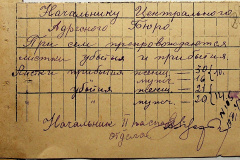 Начальнику Центрального
Адресного Бюро.
При сем препровождаются
листки убытия и прибытия.
Листки прибытия женщ — 30
" " мужч — 16
" убытия женщ — 21
" " мужч — 20
Начальник II паспортн
отделов